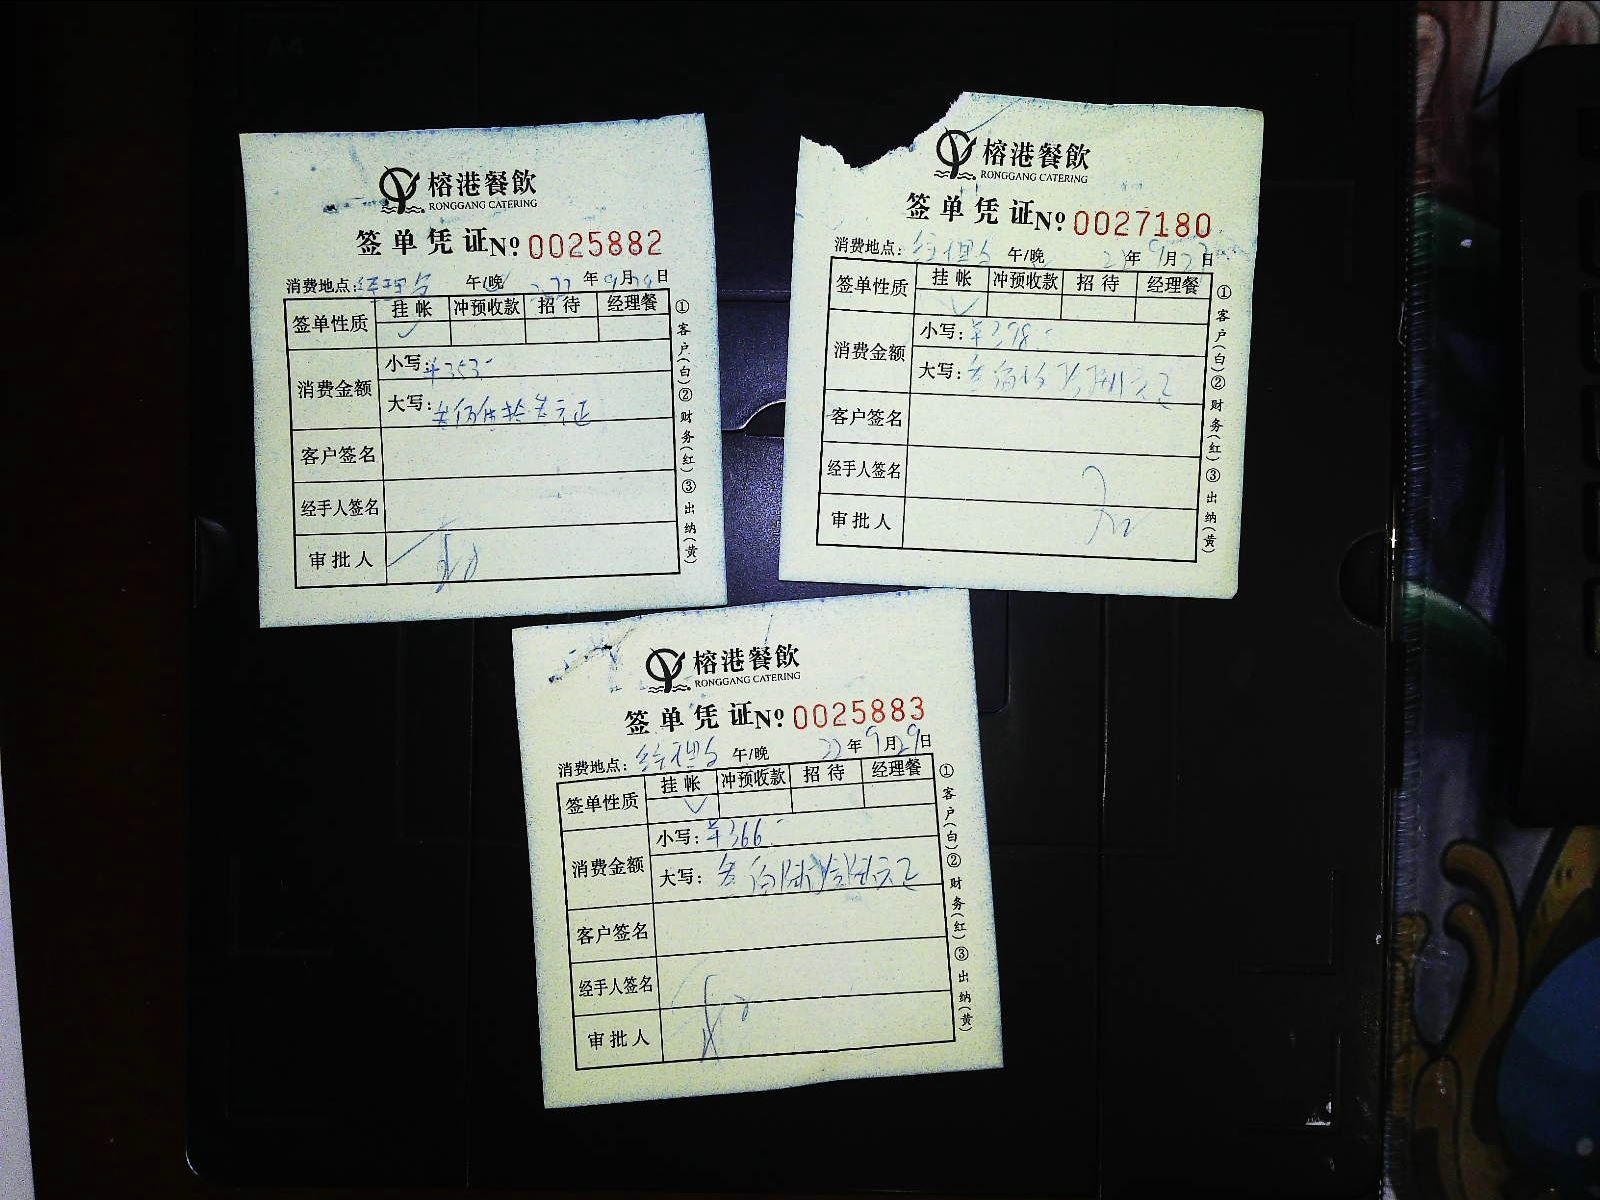 榕港餐飲
RONGGANG CATERING
签单凭证 Nº 0025882
消费地点: 经理 午/晚 22年9月29日
签单性质 挂帐 冲预收款 招待 经理餐
消费金额
小写: ¥353.-
大写: 叁佰伍拾叁元正
客户签名
经手人签名
审批人
①客户(白)②财务(红)③出纳(黄)
榕港餐飲
RONGGANG CATERING
签单凭证 Nº 0027180
消费地点: 经理 午/晚 年9月 日
签单性质 挂帐 冲预收款 招待 经理餐
消费金额
小写: ¥298.-
大写:
客户签名
经手人签名
审批人
①客户(白)②财务(红)③出纳(黄)
榕港餐飲
RONGGANG CATERING
签单凭证 Nº 0025883
消费地点: 经理 午/晚 22年9月29日
签单性质 挂帐 冲预收款 招待 经理餐
消费金额
小写: ¥366.-
大写: 叁佰陆拾陆元正
客户签名
经手人签名
审批人
①客户(白)②财务(红)③出纳(黄)